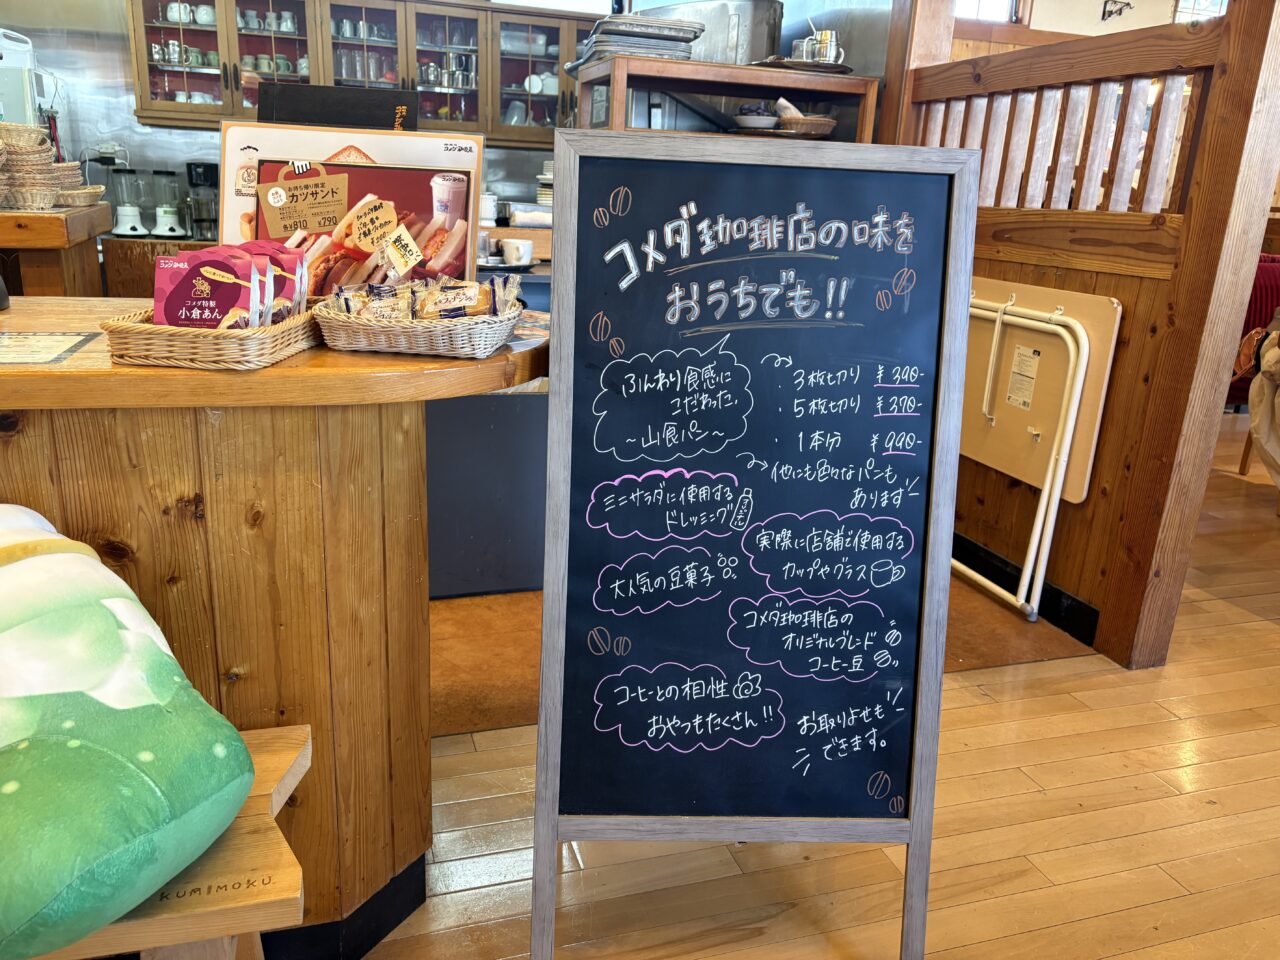 コメダ珈琲店の味を
おうちでも!!
ふんわり食感に
こだわった、
～山食パン～
・3枚切り ¥390-
・5枚切り ¥370-
・1本分 ¥990-
他にも色々なパンも
あります
ミニサラダに使用する
ドレッシング
実際に店舗で使用する
カップやグラス
大人気の豆菓子
コメダ珈琲店の
オリジナルブレンド
コーヒー豆
コーヒーとの相性◎
おやつもたくさん!!
お取りよせも
できます。
コメダ珈琲店
お持ち帰り限定
カツサンド
各¥810
¥790
コメダ珈琲店
コメダ特製
小倉あん
KUMIMOKU